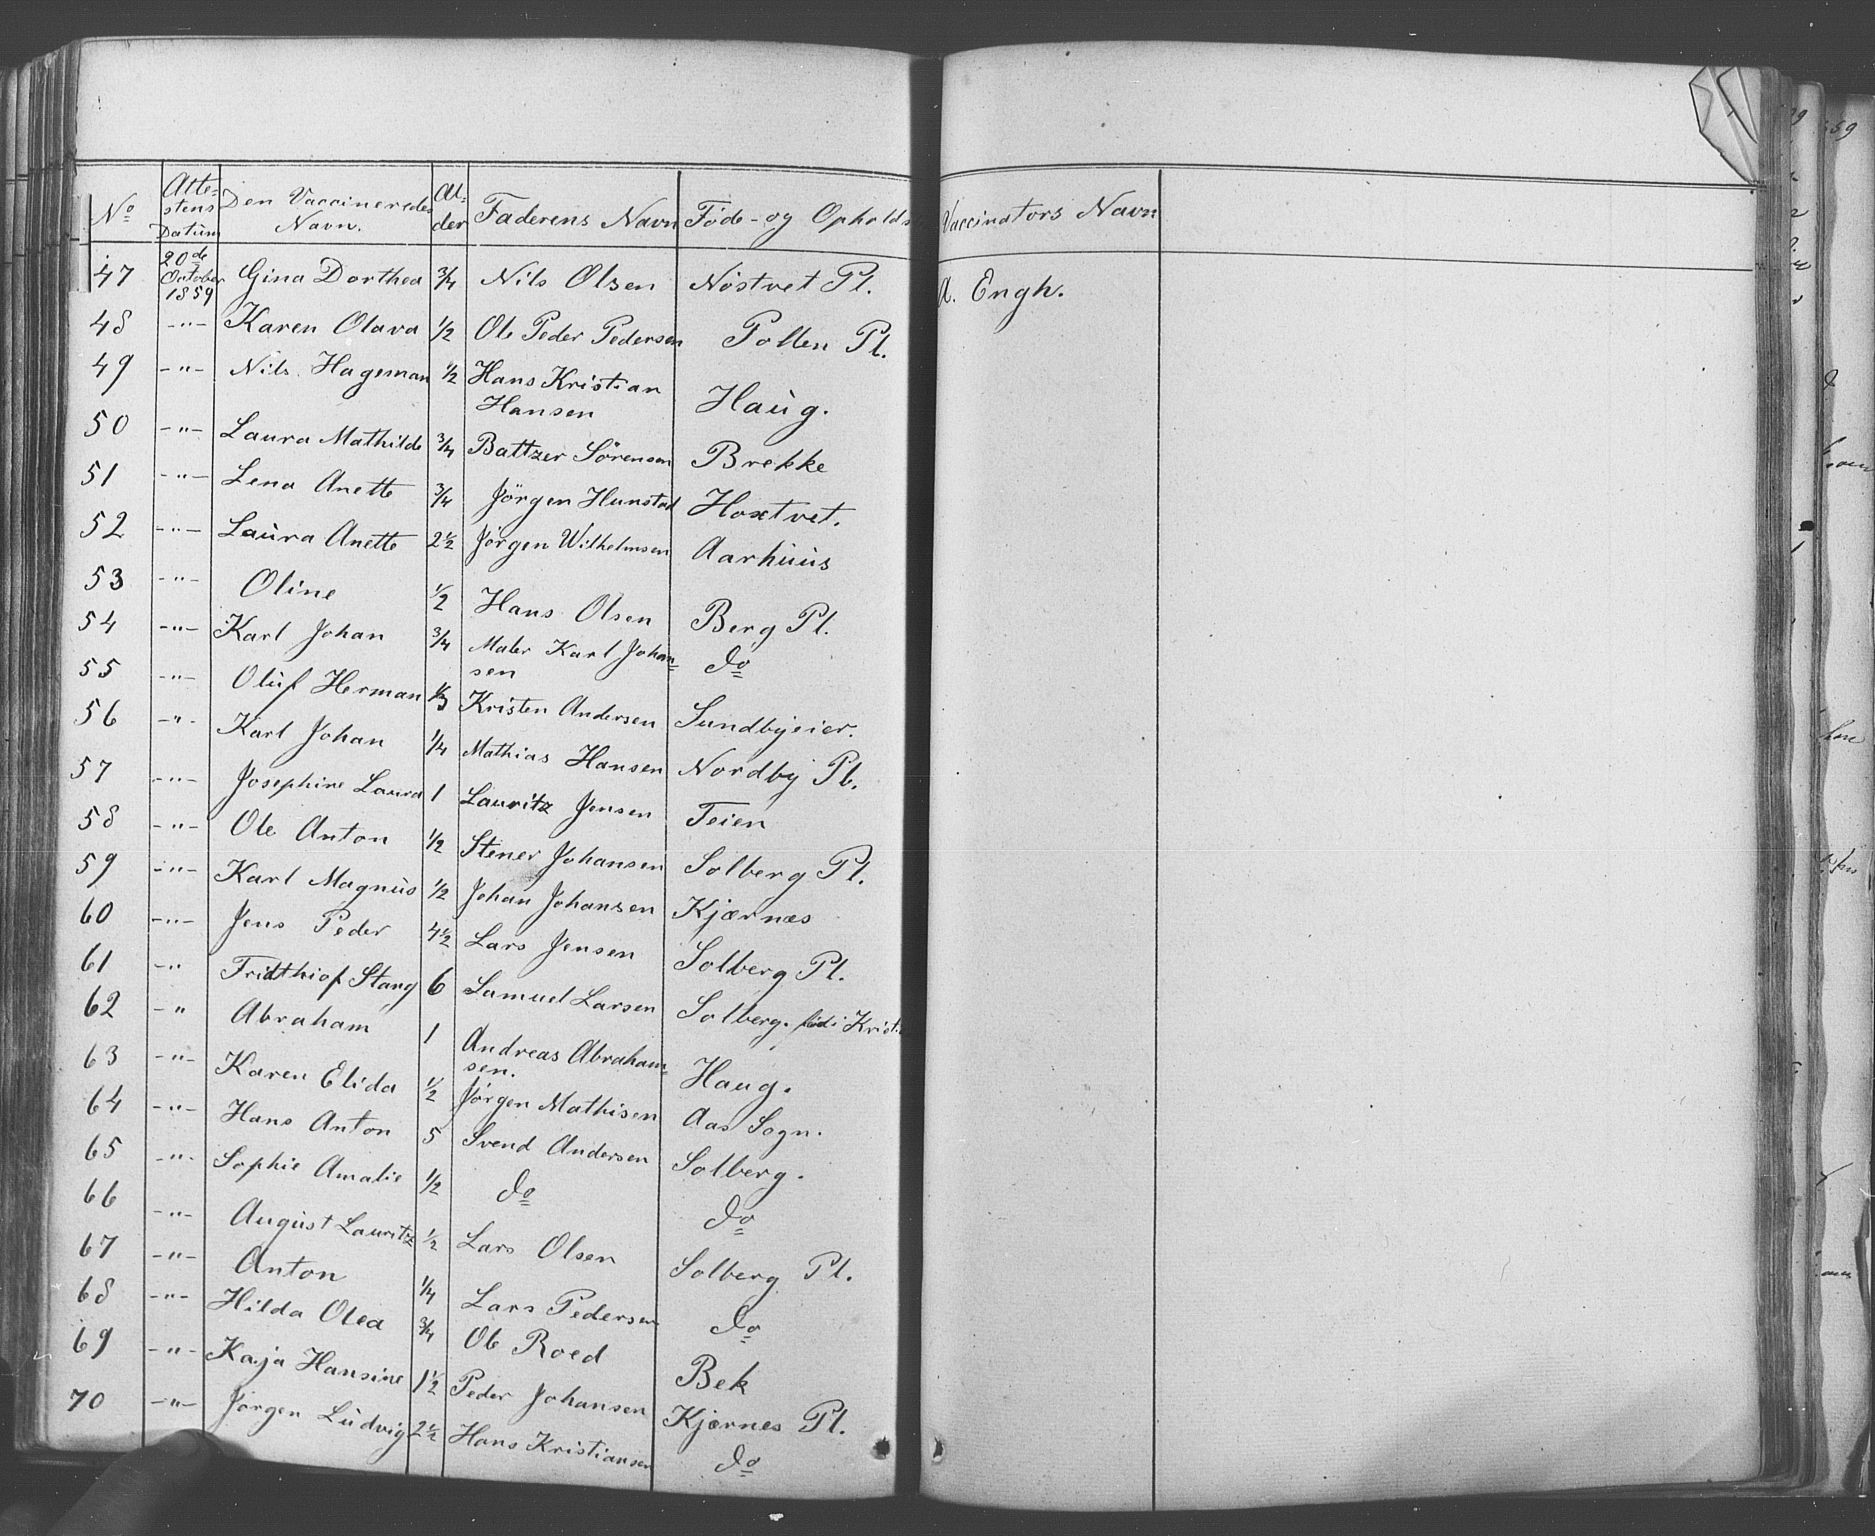 No Attestens Datum Den Vaccineredes Navn. Alder Faderens Navn Føde- og Opholds Vaccinators Navn
47 20de October 1859 Gina Dorthea 3/4 Nils Olsen Nøstvet Pl. A. Engh.
48 -"- Karen Olava 1/2 Ole Peder Pedersen Pollen Pl.
49 -"- Nils Hageman 1/2 Hans Kristian Hansen Haug.
50 -"- Laura Mathilde 3/4 Baltzer Sørensen Brekke
51 -"- Lena Anette 3/4 Jörgen Hunstad Hoxtvet.
52 -"- Laura Anette 2 1/2 Jörgen Wilhelmsen Aarhuus
53 -"- Oline 1/2 Hans Olsen Berg Pl.
54 -"- Karl Johan 3/4 Maler Karl Johansen do
55 -"- Oluf Herman 1/3 Kristen Andersen Sundbyeier.
56 -"- Karl Johan 1/4 Mathias Hansen Nordby Pl.
57 -"- Josephine Laura 1 Lauritz Jensen Teien
58 -"- Ole Anton 1/2 Stener Johansen Solberg Pl.
59 -"- Karl Magnus 1/2 Johan Johansen Kjærnes
60 -"- Jens Peder 4 1/2 Lars Jensen Solberg Pl.
61 -" Fridthiof Stang 6 Samuel Larsen Solberg. född i Kristi
62 -" Abraham 1 Andreas Abrahamsen. Haug.
63 -"- Karen Elida 1/2 Jørgen Mathisen Aas Sogn.
64 -"- Hans Anton 5 Svend Andersen Solberg.
65 -"- Sophie Amalie 1/2 do do
66 -"- August Lauritz 1/2 Lars Olsen Solberg Pl.
67 -"- Anton 1/4 Lars Pedersen do
68 -"- Hilda Olea 3/4 Ole Roed Bek
69 -"- Kaja Hansine 1 1/2 Peder Johansen Kjærnes Pl.
70 -"- Jörgen Ludvig 2 1/2 Hans Kristiansen do